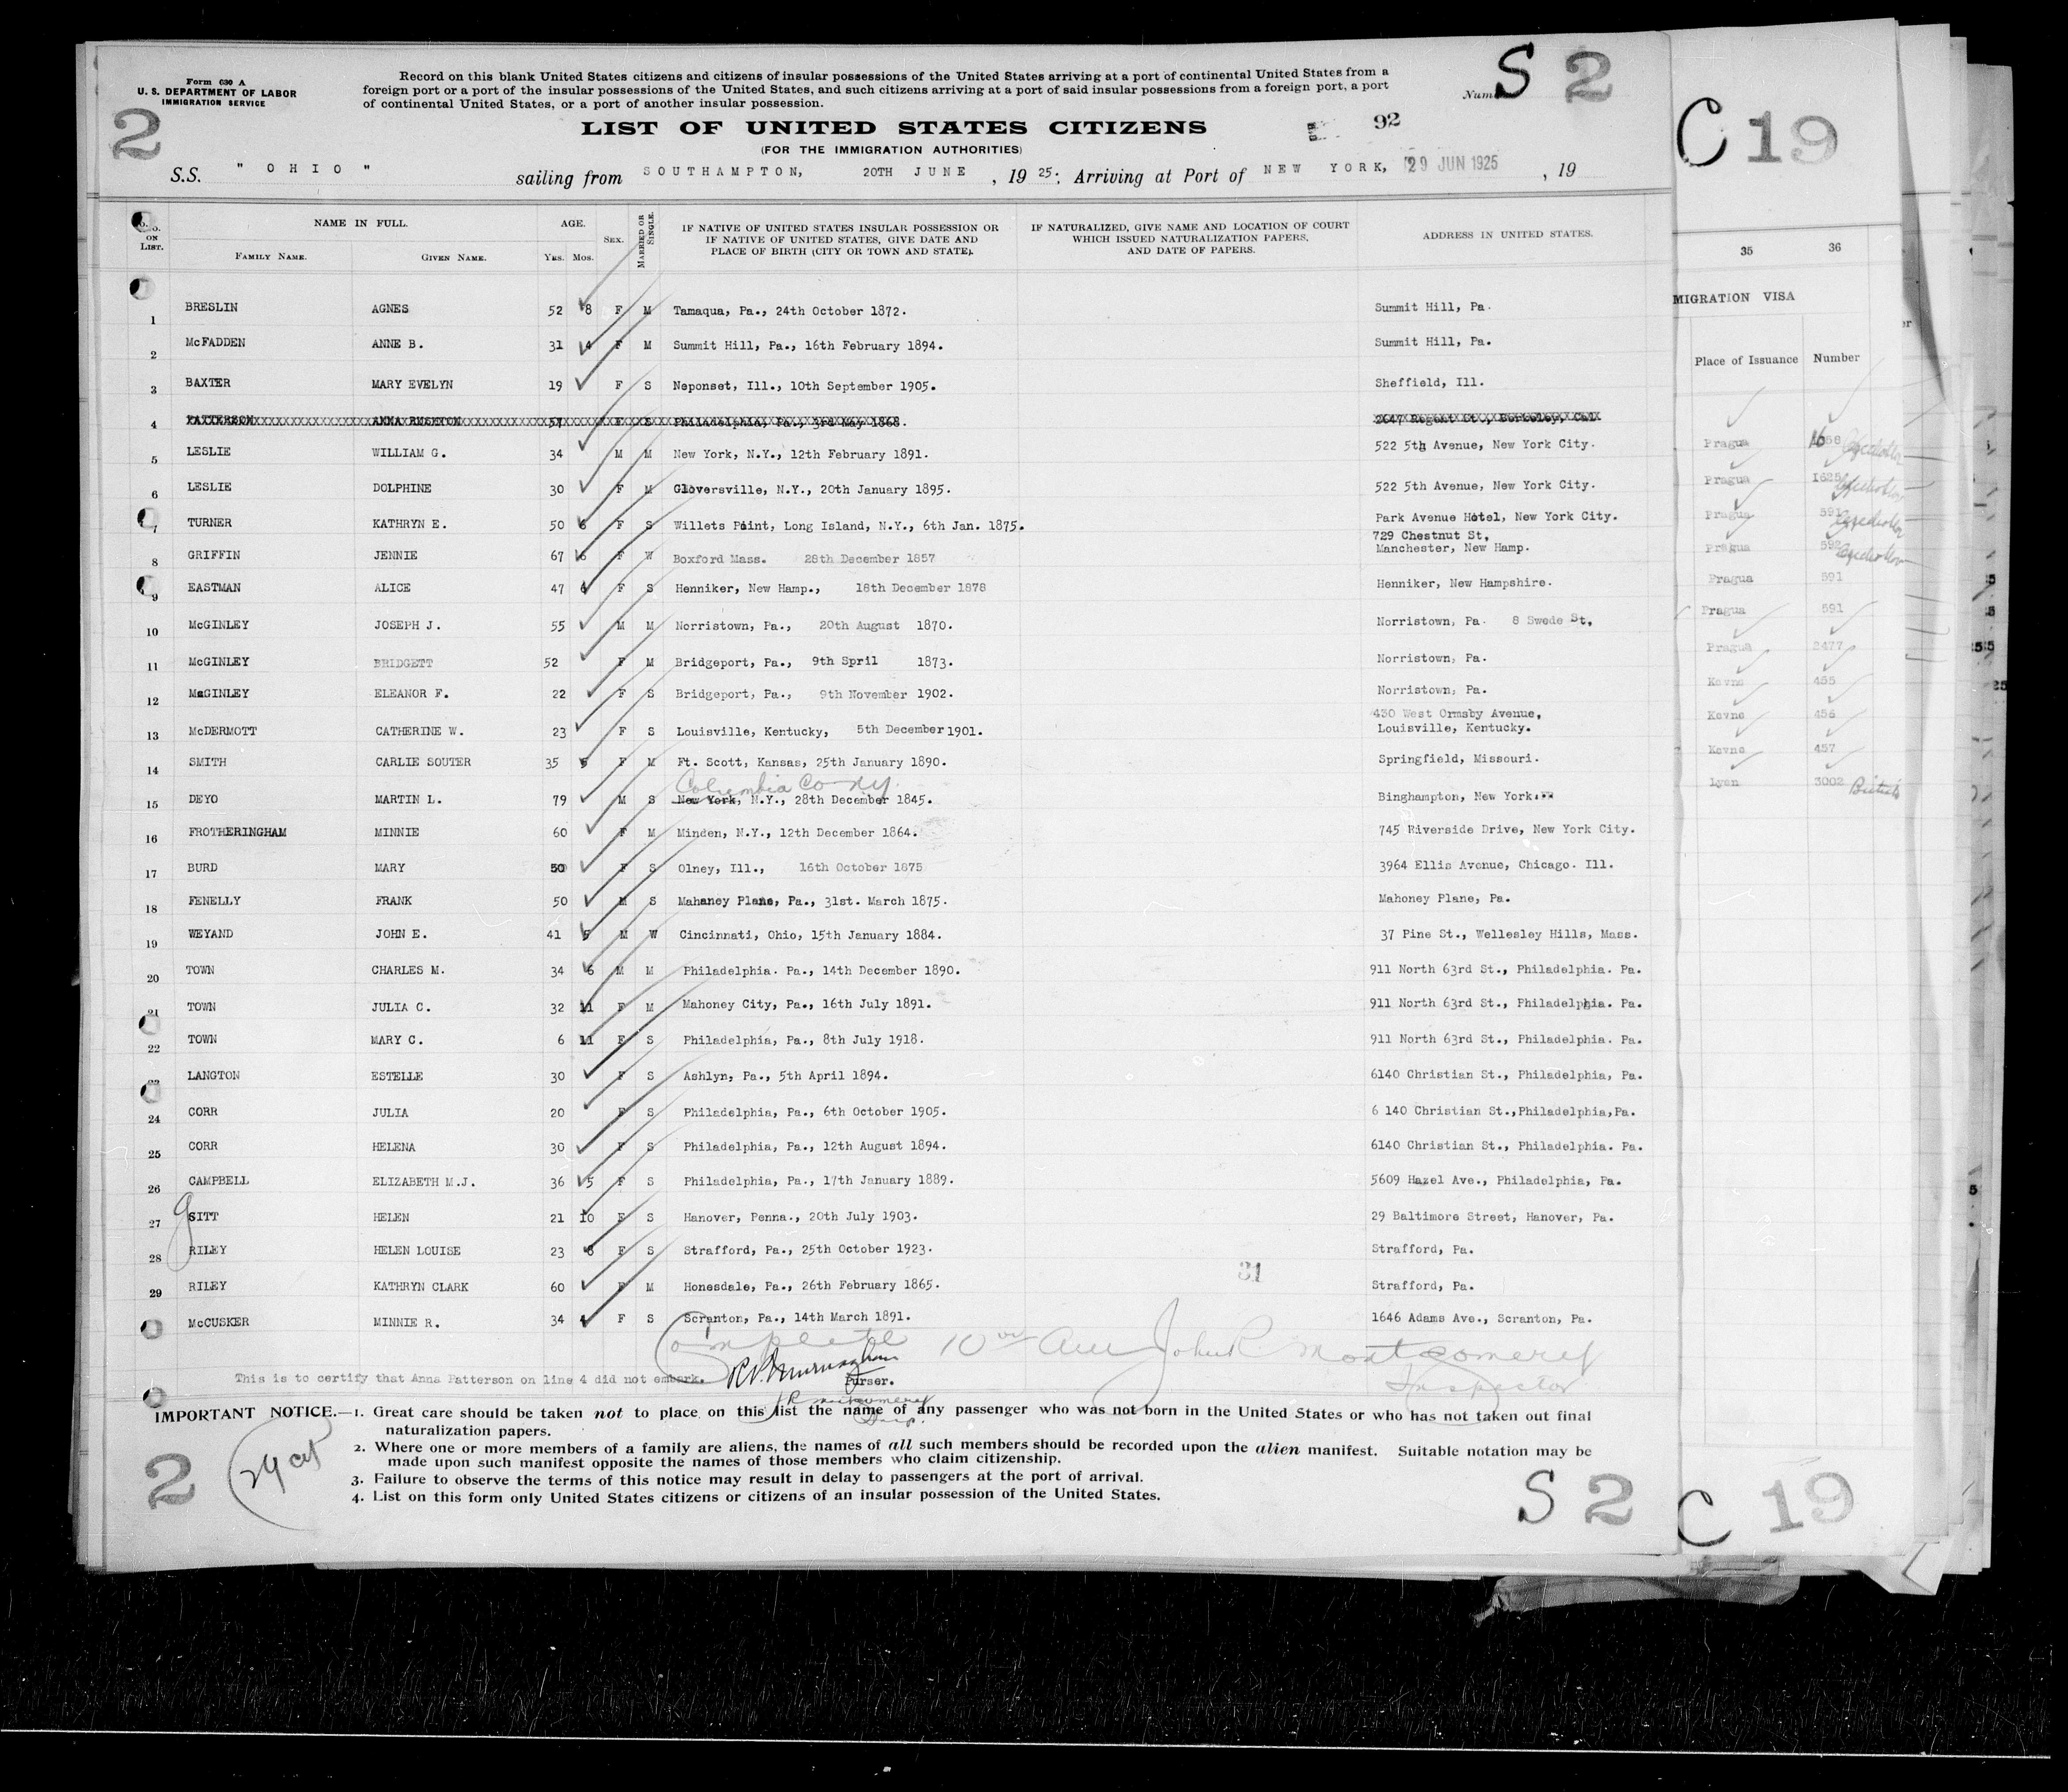 Form 630 A
U. S. DEPARTMENT OF LABOR
IMMIGRATION SERVICE
Record on this blank United States citizens and citizens of insular possessions of the United States arriving at a port of continental United States from a
foreign port or a port of the insular possessions of the United States, and such citizens arriving at a port of said insular possessions from a foreign port, a port
of continental United States, or a port of another insular possession.
S 2
2
LIST OF UNITED STATES CITIZENS
92
(FOR THE IMMIGRATION AUTHORITIES)
S.S. " OHIO " sailing from SOUTHAMPTON, 20TH JUNE , 19 25; Arriving at Port of NEW YORK, 29 JUN 1925 , 19
No. ON LIST. NAME IN FULL. FAMILY NAME. GIVEN NAME. AGE. YRS. MOS. SEX. MARRIED OR SINGLE. IF NATIVE OF UNITED STATES INSULAR POSSESSION OR IF NATIVE OF UNITED STATES, GIVE DATE AND PLACE OF BIRTH (CITY OR TOWN AND STATE). IF NATURALIZED, GIVE NAME AND LOCATION OF COURT WHICH ISSUED NATURALIZATION PAPERS, AND DATE OF PAPERS. ADDRESS IN UNITED STATES.
1 BRESLIN AGNES 52 8 F M Tamaqua, Pa., 24th October 1872. Summit Hill, Pa.
2 McFADDEN ANNE B. 31 4 F M Summit Hill, Pa., 16th February 1894. Summit Hill, Pa.
3 BAXTER MARY EVELYN 19 F S Neponset, Ill., 10th September 1905. Sheffield, Ill.
4 PATTERSON ANNA RUSHTON 57 F S Philadelphia, Pa., 3rd May 1868. 2647 Regent St., Berkeley, Cal.
5 LESLIE WILLIAM G. 34 M M New York, N.Y., 12th February 1891. 522 5th Avenue, New York City.
6 LESLIE DOLPHINE 30 F M Gloversville, N.Y., 20th January 1895. 522 5th Avenue, New York City.
7 TURNER KATHRYN E. 50 6 F S Willets Point, Long Island, N.Y., 6th Jan. 1875. Park Avenue Hotel, New York City.
729 Chestnut St,
8 GRIFFIN JENNIE 67 6 F W Boxford Mass. 28th December 1857 Manchester, New Hamp.
9 EASTMAN ALICE 47 6 F S Henniker, New Hamp., 18th December 1878 Henniker, New Hampshire.
10 McGINLEY JOSEPH J. 55 M M Norristown, Pa., 20th August 1870. Norristown, Pa. 8 Swede St,
11 McGINLEY BRIDGETT 52 F M Bridgeport, Pa., 9th Spril 1873. Norristown, Pa.
12 McGINLEY ELEANOR F. 22 F S Bridgeport, Pa., 9th November 1902. Norristown, Pa.
430 West Ormsby Avenue,
13 McDERMOTT CATHERINE W. 23 F S Louisville, Kentucky, 5th December 1901. Louisville, Kentucky.
14 SMITH CARLIE SOUTER 35 5 F M Ft. Scott, Kansas, 25th January 1890. Springfield, Missouri.
Columbia Co NY.
15 DEYO MARTIN L. 79 M S New York, N.Y., 28th December 1845. Binghampton, New York.
16 FROTHERINGHAM MINNIE 60 F M Minden, N.Y., 12th December 1864. 745 Riverside Drive, New York City.
17 BURD MARY 50 F S Olney, Ill., 16th October 1875 3964 Ellis Avenue, Chicago. Ill.
18 FENELLY FRANK 50 M S Mahaney Plane, Pa., 31st. March 1875. Mahoney Plane, Pa.
19 WEYAND JOHN E. 41 5 M W Cincinnati, Ohio, 15th January 1884. 37 Pine St., Wellesley Hills, Mass.
20 TOWN CHARLES M. 34 6 M M Philadelphia. Pa., 14th December 1890. 911 North 63rd St., Philadelphia. Pa.
21 TOWN JULIA C. 32 11 F M Mahoney City, Pa., 16th July 1891. 911 North 63rd St., Philadelphia. Pa.
22 TOWN MARY C. 6 11 F S Philadelphia, Pa., 8th July 1918. 911 North 63rd St., Philadelphia. Pa.
23 LANGTON ESTELLE 30 F S Ashlyn, Pa., 5th April 1894. 6140 Christian St., Philadelphia, Pa.
24 CORR JULIA 20 F S Philadelphia, Pa., 6th October 1905. 6 140 Christian St.,Philadelphia,Pa.
25 CORR HELENA 30 F S Philadelphia, Pa., 12th August 1894. 6140 Christian St., Philadelphia. Pa.
26 CAMPBELL ELIZABETH M.J. 36 5 F S Philadelphia, Pa., 17th January 1889. 5609 Hazel Ave., Philadelphia, Pa.
27 GITT HELEN 21 10 F S Hanover, Penna., 20th July 1903. 29 Baltimore Street, Hanover, Pa.
28 RILEY HELEN LOUISE 23 8 F S Strafford, Pa., 25th October 1923. Strafford, Pa.
29 RILEY KATHRYN CLARK 60 F M Honesdale, Pa., 26th February 1865. Strafford, Pa.
31
McCUSKER MINNIE R. 34 4 F S Scranton, Pa., 14th March 1891. 1646 Adams Ave., Scranton, Pa.
Complete John R Montgomery
Inspector
This is to certify that Anna Patterson on line 4 did not embark. Purser.
J R Montgomery
Insp.
IMPORTANT NOTICE.—1. Great care should be taken not to place on this list the name of any passenger who was not born in the United States or who has not taken out final
naturalization papers.
2. Where one or more members of a family are aliens, the names of all such members should be recorded upon the alien manifest. Suitable notation may be
made upon such manifest opposite the names of those members who claim citizenship.
3. Failure to observe the terms of this notice may result in delay to passengers at the port of arrival.
4. List on this form only United States citizens or citizens of an insular possession of the United States.
2
29 cit
S 2
C 19
35 36
MIGRATION VISA
Place of Issuance Number
Prague
Prague 1625
Prague 591
Prague 592
Prague 591
Prague 591
Prague 2477
Kovno 455
Kovno 456
Kovno 457
Lyon 3002 British
C 19